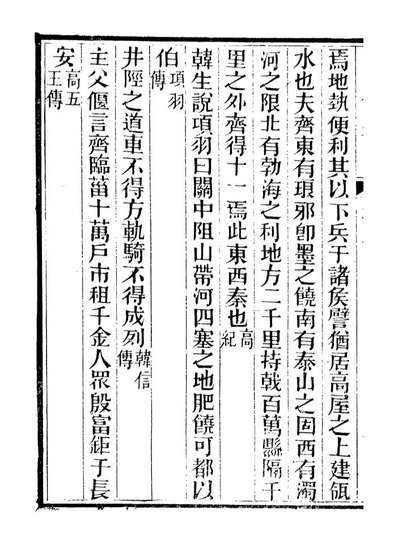 焉地埶便利其以下兵于諸侯譬猶居高屋之上建瓴
水也夫齊東有琅邪卽墨之饒南有泰山之固西有濁
河之限北有勃海之利地方二千里持戟百萬縣隔千
里之外齊得十二焉此東西秦也高紀
韓生說項羽曰關中阻山帶河四塞之地肥饒可都以
伯項羽傳
井陘之道車不得方軌騎不得成列韓信傳
主父偃言齊臨菑十萬戶市租千金人眾殷富鉅于長
安高五王傳